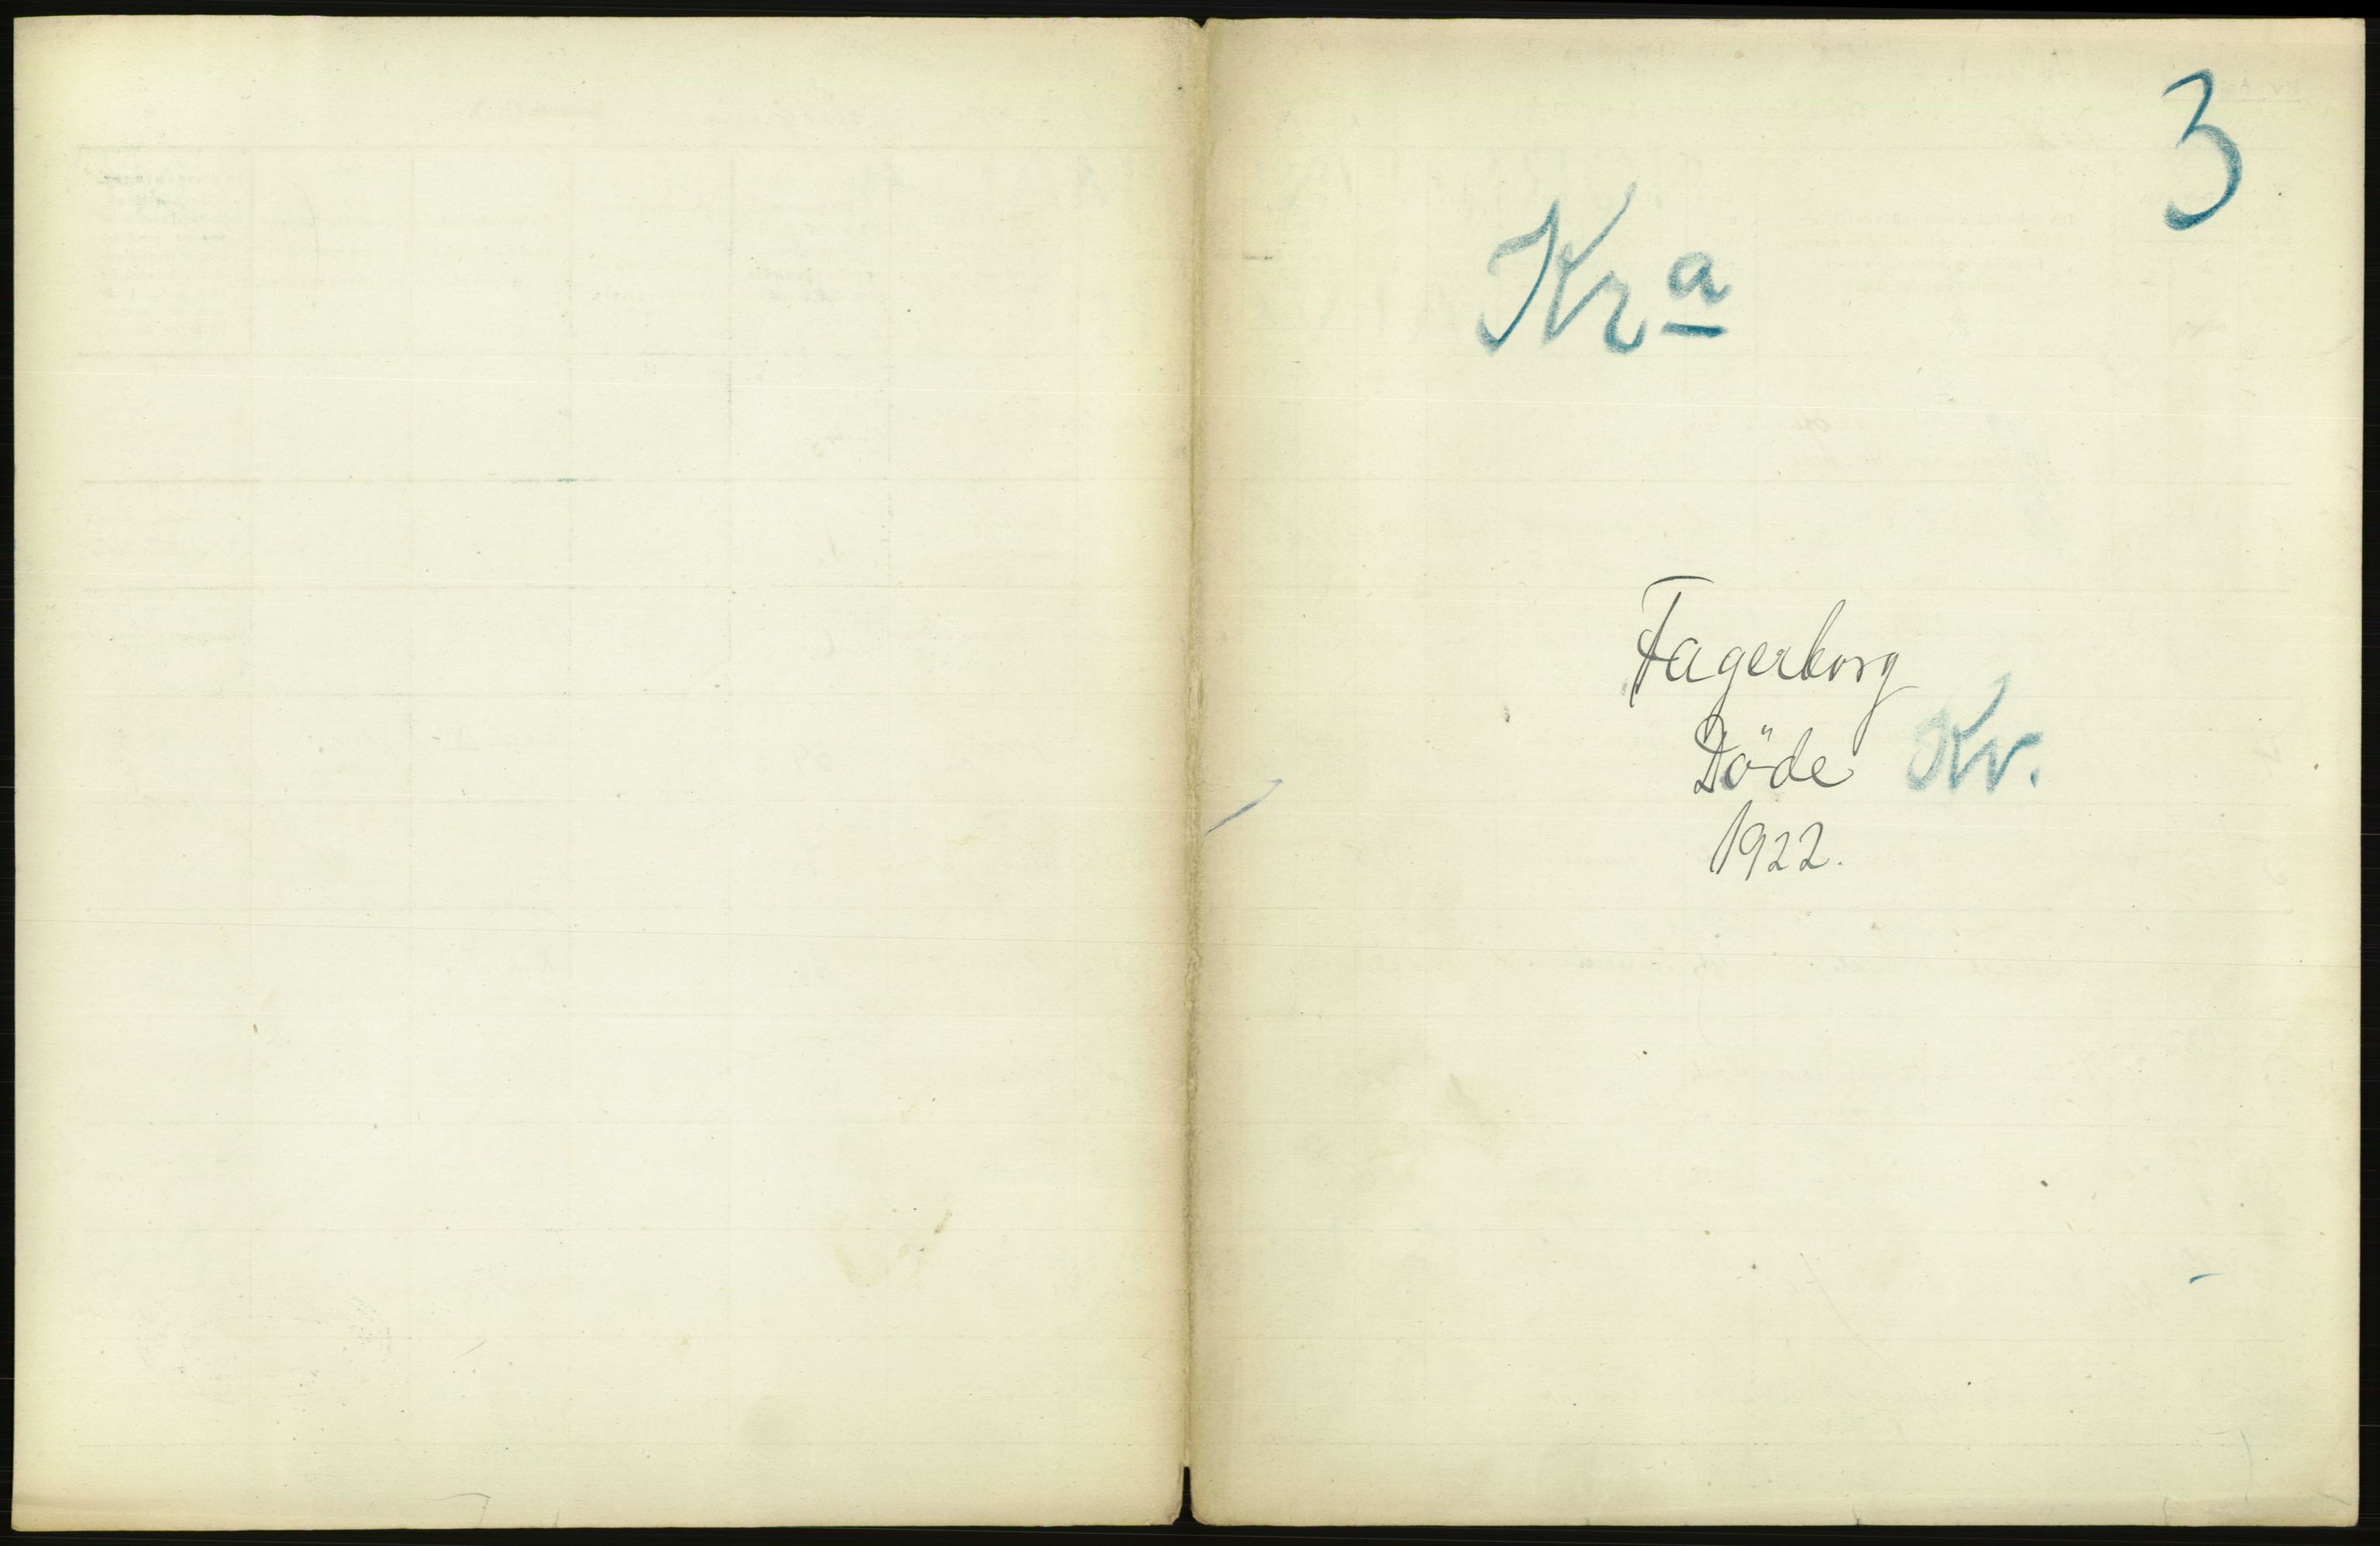 3
Kra
Fagerborg
Döde Kv.
1922.